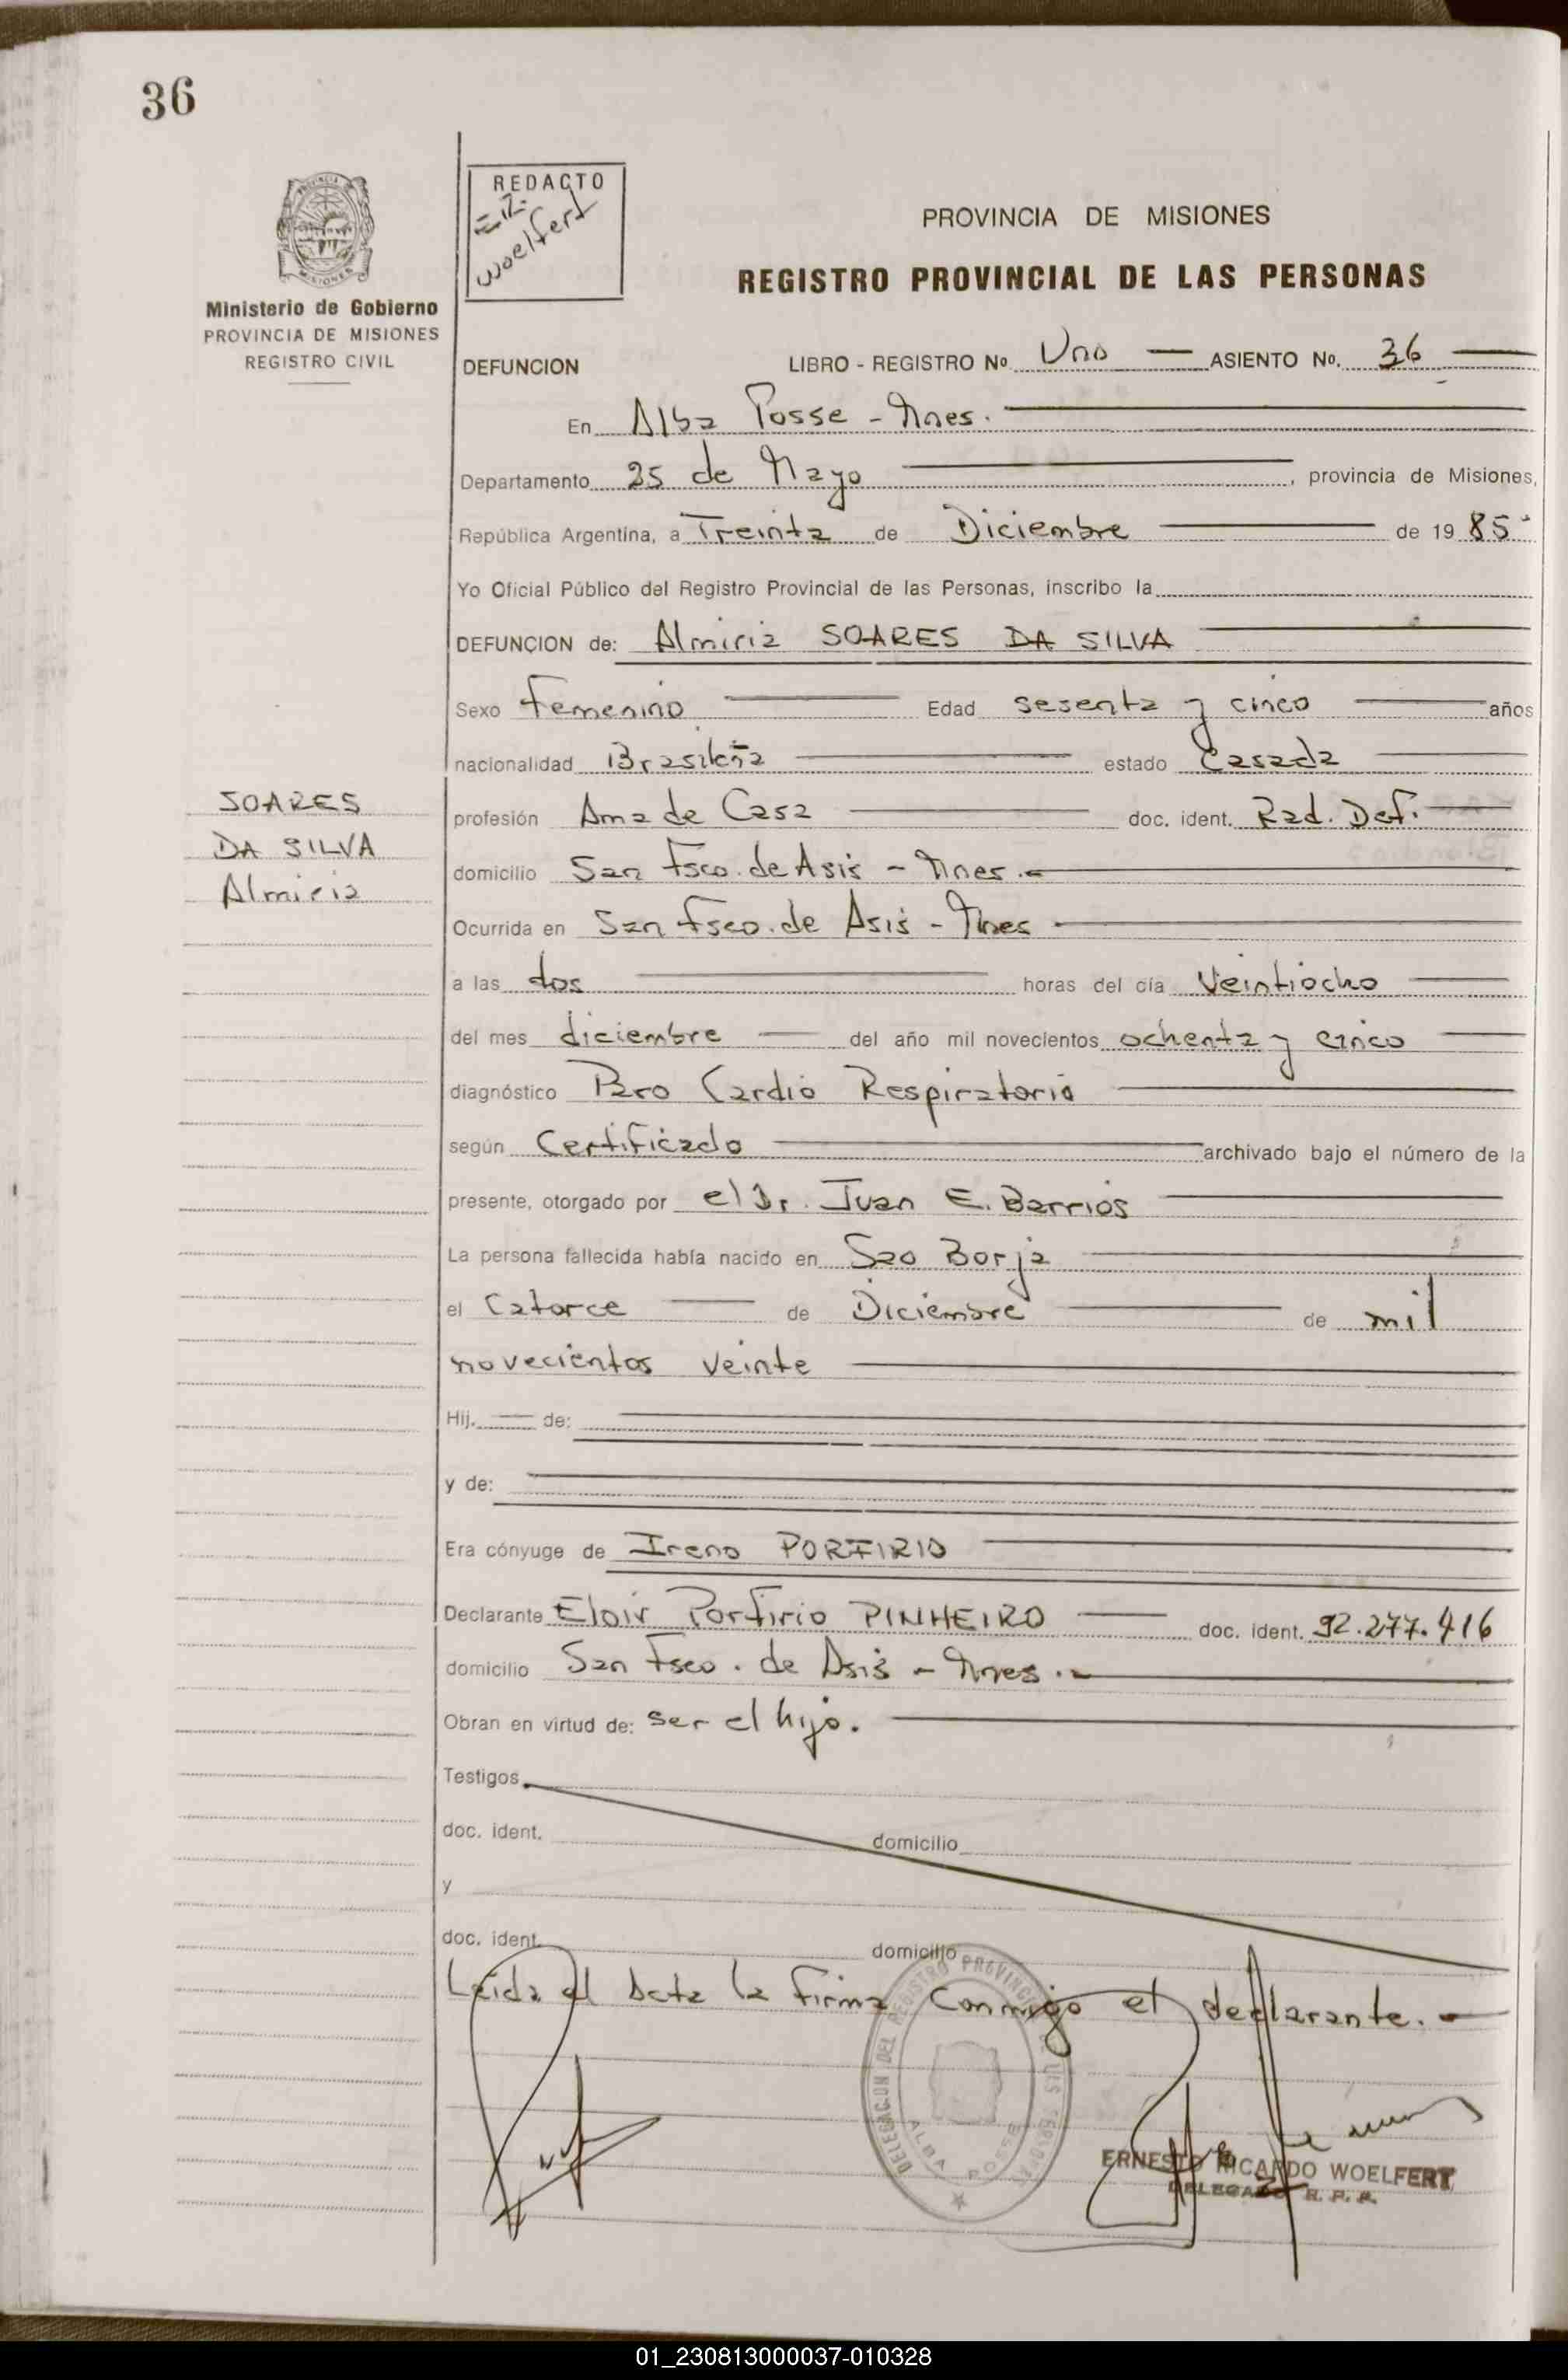 36
REDACTO
E.R.
Woelfert
Ministerio de Gobierno
PROVINCIA DE MISIONES
REGISTRO CIVIL
PROVINCIA DE MISIONES
REGISTRO PROVINCIAL DE LAS PERSONAS
DEFUNCION LIBRO - REGISTRO Nº Uno — ASIENTO Nº. 36 —
En Alba Posse - Mnes.
Departamento 25 de Mayo , provincia de Misiones,
República Argentina, a Treinta de Diciembre de 19 85
Yo Oficial Público del Registro Provincial de las Personas, inscribo la
DEFUNCION de: Almiria SOARES DA SILVA
Sexo Femenino Edad sesenta y cinco años
nacionalidad Brasileña estado Casada
profesión Ama de Casa doc. ident. Rad. Def.
domicilio San Fsco. de Asis - Mnes.-
Ocurrida en San Fsco. de Asis - Mnes
a las dos horas del día Veintiocho
del mes diciembre — del año mil novecientos ochenta y cinco
diagnóstico Paro Cardio Respiratorio
según Certificado archivado bajo el número de la
presente, otorgado por el Dr. Juan E. Barrios
La persona fallecida había nacido en Sao Borja
el Catorce — de Diciembre de mil
novecientos veinte
Hij. — de:
y de:
Era cónyuge de Ireno PORFIRIO
Declarante Eloir Porfirio PINHEIRO — doc. ident. 92.277.416
domicilio San Fsco. de Asis - Mnes.-
Obran en virtud de: ser el hijo.
Testigos
doc. ident. domicilio
y
doc. ident. domicilio
Leida el Acta la firma conmigo el declarante.-
SOARES
DA SILVA
Almiria
DELEGACION DEL REGISTRO PROVINCIAL DE LAS PERSONAS
ALBA POSSE
ERNESTO RICARDO WOELFERT
DELEGADO R. P. P.
01_230813000037-010328